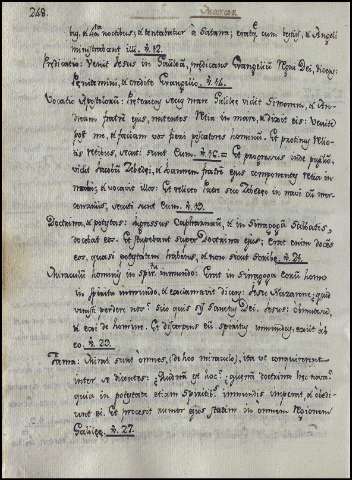 248.
bus, & 40. noctibus; & tentabatur à Satana; eratq; cum bestijs, & Angeli
ministrabant illi. v. 12.
Prædicatio: Venit Jesus in Galilæã, prædicans Evangeliũ Regni Dei, dicens:
Pœnitemini, & credite Evangelio. v. 14.
Vocatio Apostolorũ: Prætereuns secus mare Galilææ vidit Simonem, & An-
dream fratrẽ ejus, mittentes Retia in mare, & dixit eis: Venite
post me, & faciam vos fieri piscatores hominũ. Et protinus relic-
tis retibus, secuti sunt eum. v. 16. = Et progressus inde pusillũ,
vidit Jacobũ Zebedæi, & Joannem fratrẽ ejus componentes retia in
navi; & vocavit illos: Et relicto Patre suo Zebedæo in navi cũ mer-
cenarijs, secuti sunt eum. v. 19.
Doctrina, & potestas: Ingressus Capharnaum, & in Sinagogã Sabbatis,
docebat eos. Et stupebant super Doctrina ejus; Erat enim docẽs
eos, quasi potestatem habens, & non sicut Scribæ. v. 21.
Miraculũ hominis in Spirᵘ immundo: Erat in Sinagoga eorũ homo
in spiritu immundo, & exclamavit dicens: Jesu Nazarene; quid
venisti perdere nos? scio quis sis sanctus Dei. Jesus: obmutesce,
& exi de homine. Et discerpens eũ spiritus immundus, exivit ab
eo. v. 23.
Fama: Mirati sunt omnes, (de hoc miraculo) ita ut conquirerent
inter se dicentes: Quidnã est hoc? quænã doctrina hæc nova?
quia in potestate etiam spiritibꝰ immundis imperat, & obedi-
unt ei. Et processit rumor ejus statim in omnem Regionem
Galilææ. v. 27.